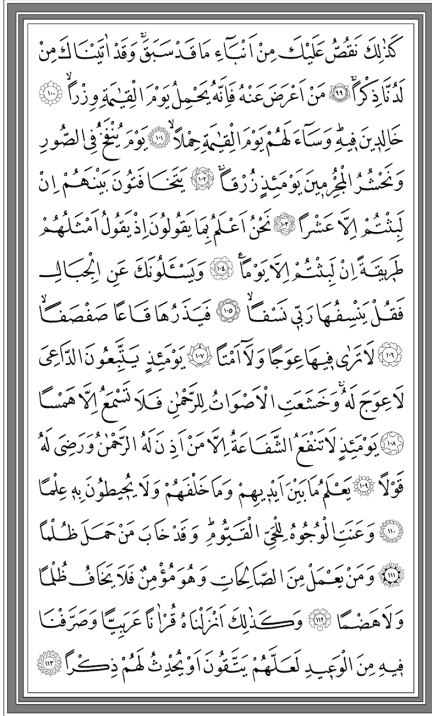 كَذٰلِكَ نَقُصُّ عَلَيْكَ مِنْ اَنْبَٓاءِ مَا قَدْ سَبَقَۚ وَقَدْ اٰتَيْنَاكَ مِنْ
لَدُنَّا ذِكْراًۚ ﴿٩٩﴾ مَنْ اَعْرَضَ عَنْهُ فَاِنَّهُ يَحْمِلُ يَوْمَ الْقِيٰمَةِ وِزْراًۙ ﴿١٠٠﴾
خَالِدٖينَ فٖيهِؕ وَسَٓاءَ لَهُمْ يَوْمَ الْقِيٰمَةِ حِمْلاًۙ ﴿١٠١﴾ يَوْمَ يُنْفَخُ فِي الصُّورِ
وَنَحْشُرُ الْمُجْرِمٖينَ يَوْمَئِذٍ زُرْقاًۚ ﴿١٠٢﴾ يَتَخَافَتُونَ بَيْنَهُمْ اِنْ
لَبِثْتُمْ اِلَّا عَشْراً ﴿١٠٣﴾ نَحْنُ اَعْلَمُ بِمَا يَقُولُونَ اِذْ يَقُولُ اَمْثَلُهُمْ
طَرٖيقَةً اِنْ لَبِثْتُمْ اِلَّا يَوْماًࣖ ﴿١٠٤﴾ وَيَسْـَٔلُونَكَ عَنِ الْجِبَالِ
فَقُلْ يَنْسِفُهَا رَبّٖي نَسْفاًۙ ﴿١٠٥﴾ فَيَذَرُهَا قَاعاً صَفْصَفاًۙ
﴿١٠٦﴾ لَا تَرٰى فٖيهَا عِوَجاً وَلَٓا اَمْتاًؕ ﴿١٠٧﴾ يَوْمَئِذٍ يَتَّبِعُونَ الدَّاعِيَ
لَا عِوَجَ لَهُۚ وَخَشَعَتِ الْاَصْوَاتُ لِلرَّحْمٰنِ فَلَا تَسْمَعُ اِلَّا هَمْساً
﴿١٠٨﴾ يَوْمَئِذٍ لَا تَنْفَعُ الشَّفَاعَةُ اِلَّا مَنْ اَذِنَ لَهُ الرَّحْمٰنُ وَرَضِيَ لَهُ
قَوْلاً ﴿١٠٩﴾ يَعْلَمُ مَا بَيْنَ اَيْدٖيهِمْ وَمَا خَلْفَهُمْ وَلَا يُحٖيطُونَ بِهٖ عِلْماً
﴿١١٠﴾ وَعَنَتِ الْوُجُوهُ لِلْحَيِّ الْقَيُّومِؕ وَقَدْ خَابَ مَنْ حَمَلَ ظُلْماً
﴿١١١﴾ وَمَنْ يَعْمَلْ مِنَ الصَّالِحَاتِ وَهُوَ مُؤْمِنٌ فَلَا يَخَافُ ظُلْماً
وَلَا هَضْماً ﴿١١٢﴾ وَكَذٰلِكَ اَنْزَلْنَاهُ قُرْاٰناً عَرَبِياًّ وَصَرَّفْنَا
فٖيهِ مِنَ الْوَعٖيدِ لَعَلَّهُمْ يَتَّقُونَ اَوْ يُحْدِثُ لَهُمْ ذِكْراً ﴿١١٣﴾